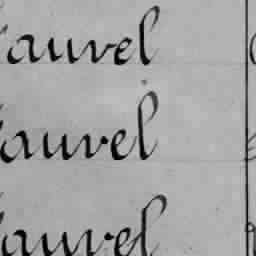 auvel
auvel
auvel